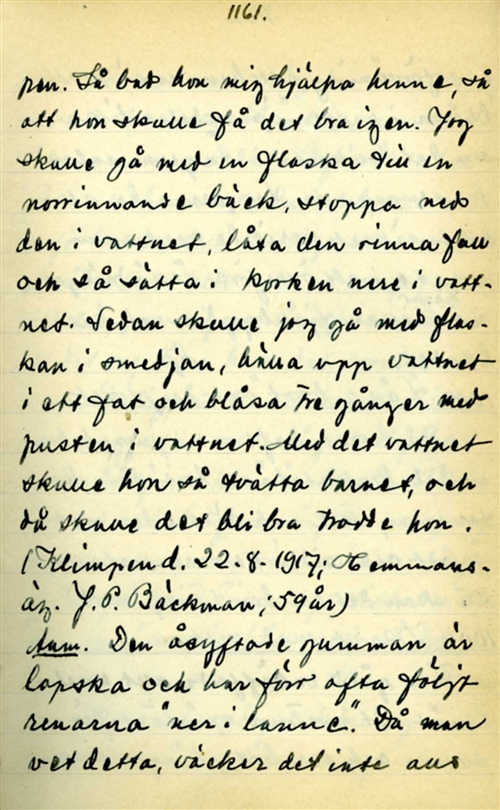 1161.
pen. Så bad hon mig hjälpa henne, så
att hon skulle få det bra igen. Jag
skulle gå med en flaska till en
norrinnande bäck, stoppa ned
den i vattnet, låta den rinna full
och så sätta i korken nere i vatt-
net. Sedan skulle jag gå med flas-
kan i smedjan, hälla upp vattnet
i ett fat och blåsa tre gånger med
pusten i vattnet. Med det vattnet
skulle hon så tvätta barnet, och
då skulle det bli bra trodde hon.
(Klimpen d. 22.8.1917; Hemmans-
äg. J. P. Bäckman; 59 år)
Anm. Den åsyftade gumman är
lapska och har förr ofta följt
renarna "ner i lanne". Då man
vet detta, väcker det inte alls